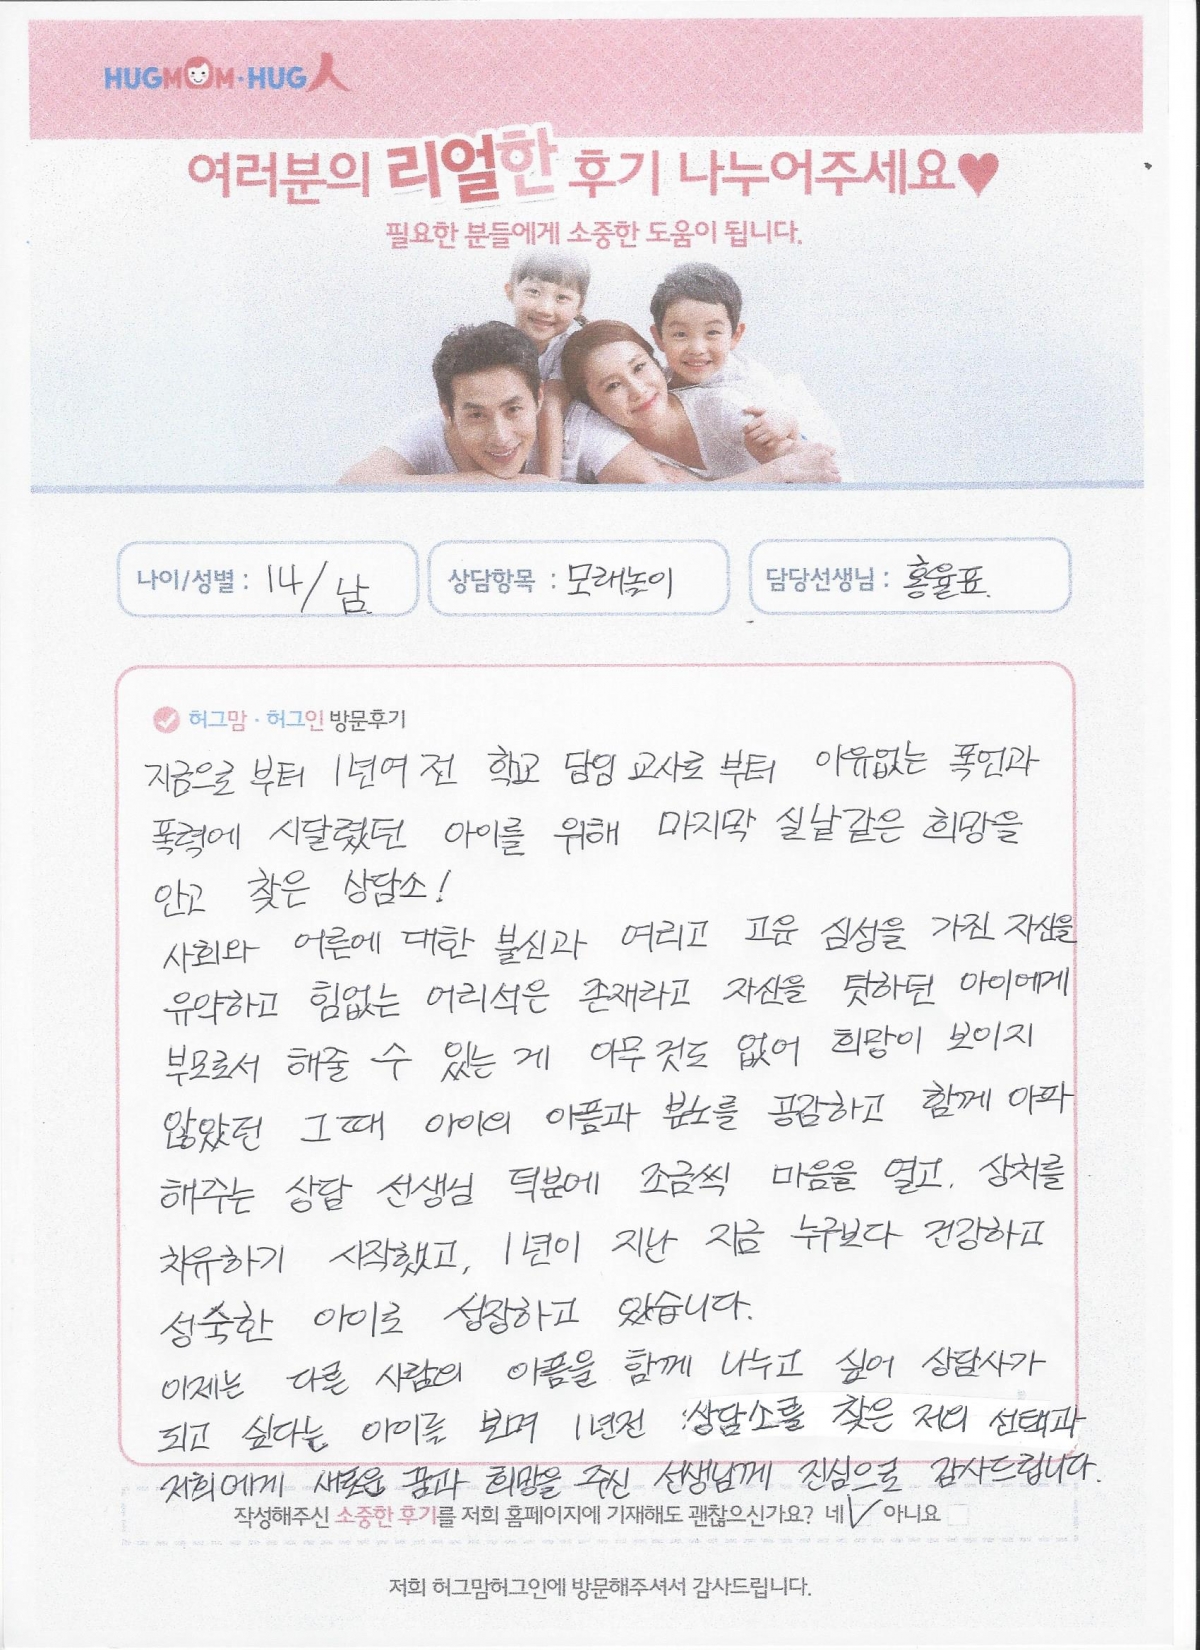 HUGMOM·HUG人
여러분의 리얼한 후기 나누어주세요♥
필요한 분들에게 소중한 도움이 됩니다.
나이/성별 : 14/남
상담항목 : 모래놀이
담당선생님 : 홍율표.
허그맘·허그인 방문후기
지금으로 부터 1년여 전 학교 담임 교사로 부터 이유없는 폭언과
폭력에 시달렸던 아이를 위해 마지막 실낱같은 희망을
안고 찾은 상담소!
사회와 어른에 대한 불신과 여리고 고운 심성을 가진 자신을
유약하고 힘없는 어리석은 존재라고 자신을 탓하던 아이에게
부모로서 해줄 수 있는 게 아무것도 없어 희망이 보이지
않았던 그때 아이의 아픔과 분노를 공감하고 함께 아파
해주는 상담 선생님 덕분에 조금씩 마음을 열고. 상처를
치유하기 시작했고, 1년이 지난 지금 누구보다 건강하고
성숙한 아이로 성장하고 있습니다.
이제는 다른 사람의 아픔을 함께 나누고 싶어 상담사가
되고 싶다는 아이를 보며 1년전 상담소를 찾은 저의 선택과
저희에게 새로운 꿈과 희망을 주신 선생님께 진심으로 감사드립니다.
작성해주신 소중한 후기를 저희 홈페이지에 기재해도 괜찮으신가요? 네 ✓ 아니요
저희 허그맘허그인에 방문해주셔서 감사드립니다.